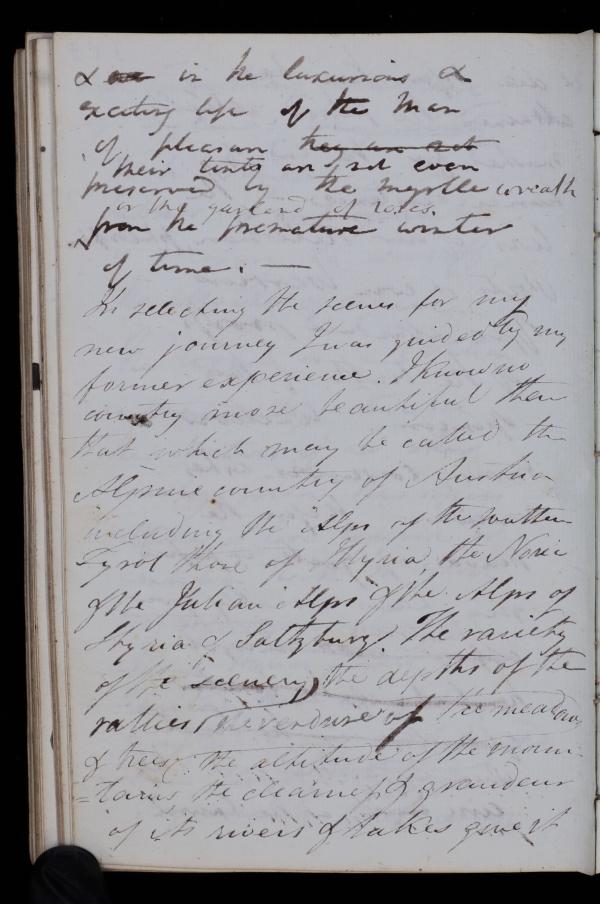 & are in the luxurious &
exciting life of the Man
of pleasure they are not
their tints are not even
preserved by the myrtle wreath
or the garland of roses.
from the premature winter
of time. —
In selecting the scenes for my
new journey I was guided by my
former experience. I know no
country more beautiful than
that which may be called the
Alpine country of Austria
including the Alps of the southern
Tyrol those of Illyria, the Noric
& the Julian Alps & the Alps of
Styria & Saltzburg. The variety
of the scenery, the depths of the
vallies, the verdure of the meadows
& trees, the altitude of the moun
=tains the clearness & grandeur
of its rivers & lakes give it